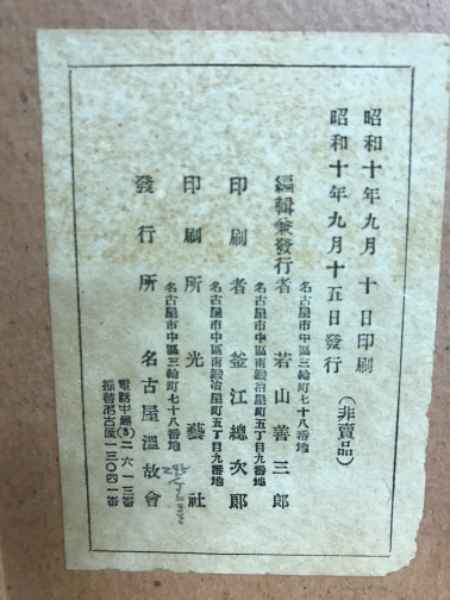 昭和十年九月十日印刷
昭和十年九月十五日發行
（非賣品）
名古屋市中區三輪町七十八番地
編輯兼發行者 若山善三郎
名古屋市中區南鍛冶屋町五丁目九番地
印刷者 釜江總次郎
名古屋市中區南鍛冶屋町五丁目九番地
印刷所 光藝社
名古屋市中區三輪町七十八番地
發行所 名古屋溫故會
電話中局(3)二六一三番
振替名古屋一三〇四一番